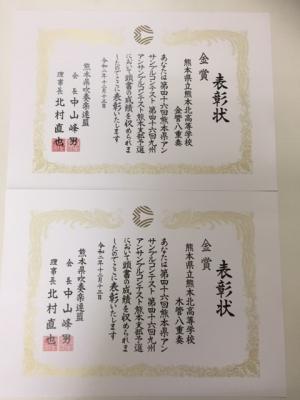 表彰状
金賞
熊本県立熊本北高等学校
金管八重奏
あなたは第四十六回熊本県アン
サンブルコンテスト第四十六回九州
アンサンブルコンテスト熊本支部予選
において頭書の成績を収められま
したのでここに表彰いたします
令和二年十二月十三日
熊本県吹奏楽連盟
会長 中山峰男
理事長 北村直也
表彰状
金賞
熊本県立熊本北高等学校
木管八重奏
あなたは第四十六回熊本県アン
サンブルコンテスト第四十六回九州
アンサンブルコンテスト熊本支部予選
において頭書の成績を収められま
したのでここに表彰いたします
令和二年十二月十三日
熊本県吹奏楽連盟
会長 中山峰男
理事長 北村直也